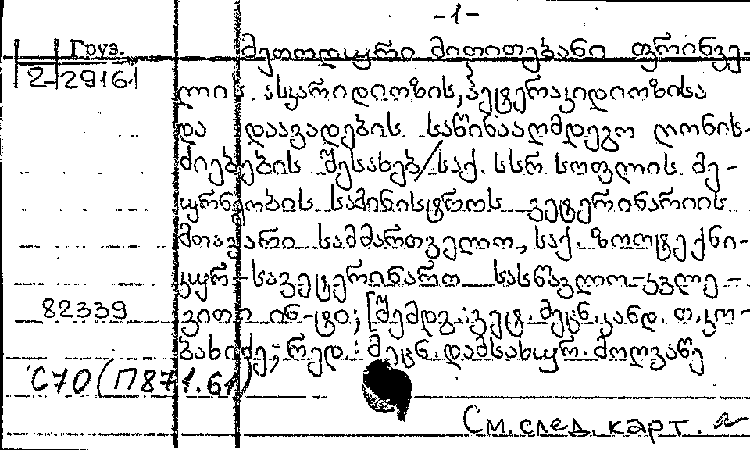 -1-
Груз.
2-29161
მეთოდური მითითებანი ფრინვე-
ლის ასკარიდიოზის, ჰეტერაკიდიოზისა
და დაავადების საწინააღმდეგო ღონის-
ძიებების შესახებ/საქ. სსრ სოფლის მე-
ურნეობის სამინისტროს ვეტერინარიის
მთავარი სამმართველო, საქ. ზოოტექნი-
კურ-სავეტერინარო სასწავლო-კვლე-
82339
ვითი ინ-ტი; [შემდგ.: ვეტ. მეცნ. კანდ. თ. კო-
ბახიძე; რედ.: მეცნ. დამსახურ. მოღვაწე
С70(П871.61)
См. след. карт.